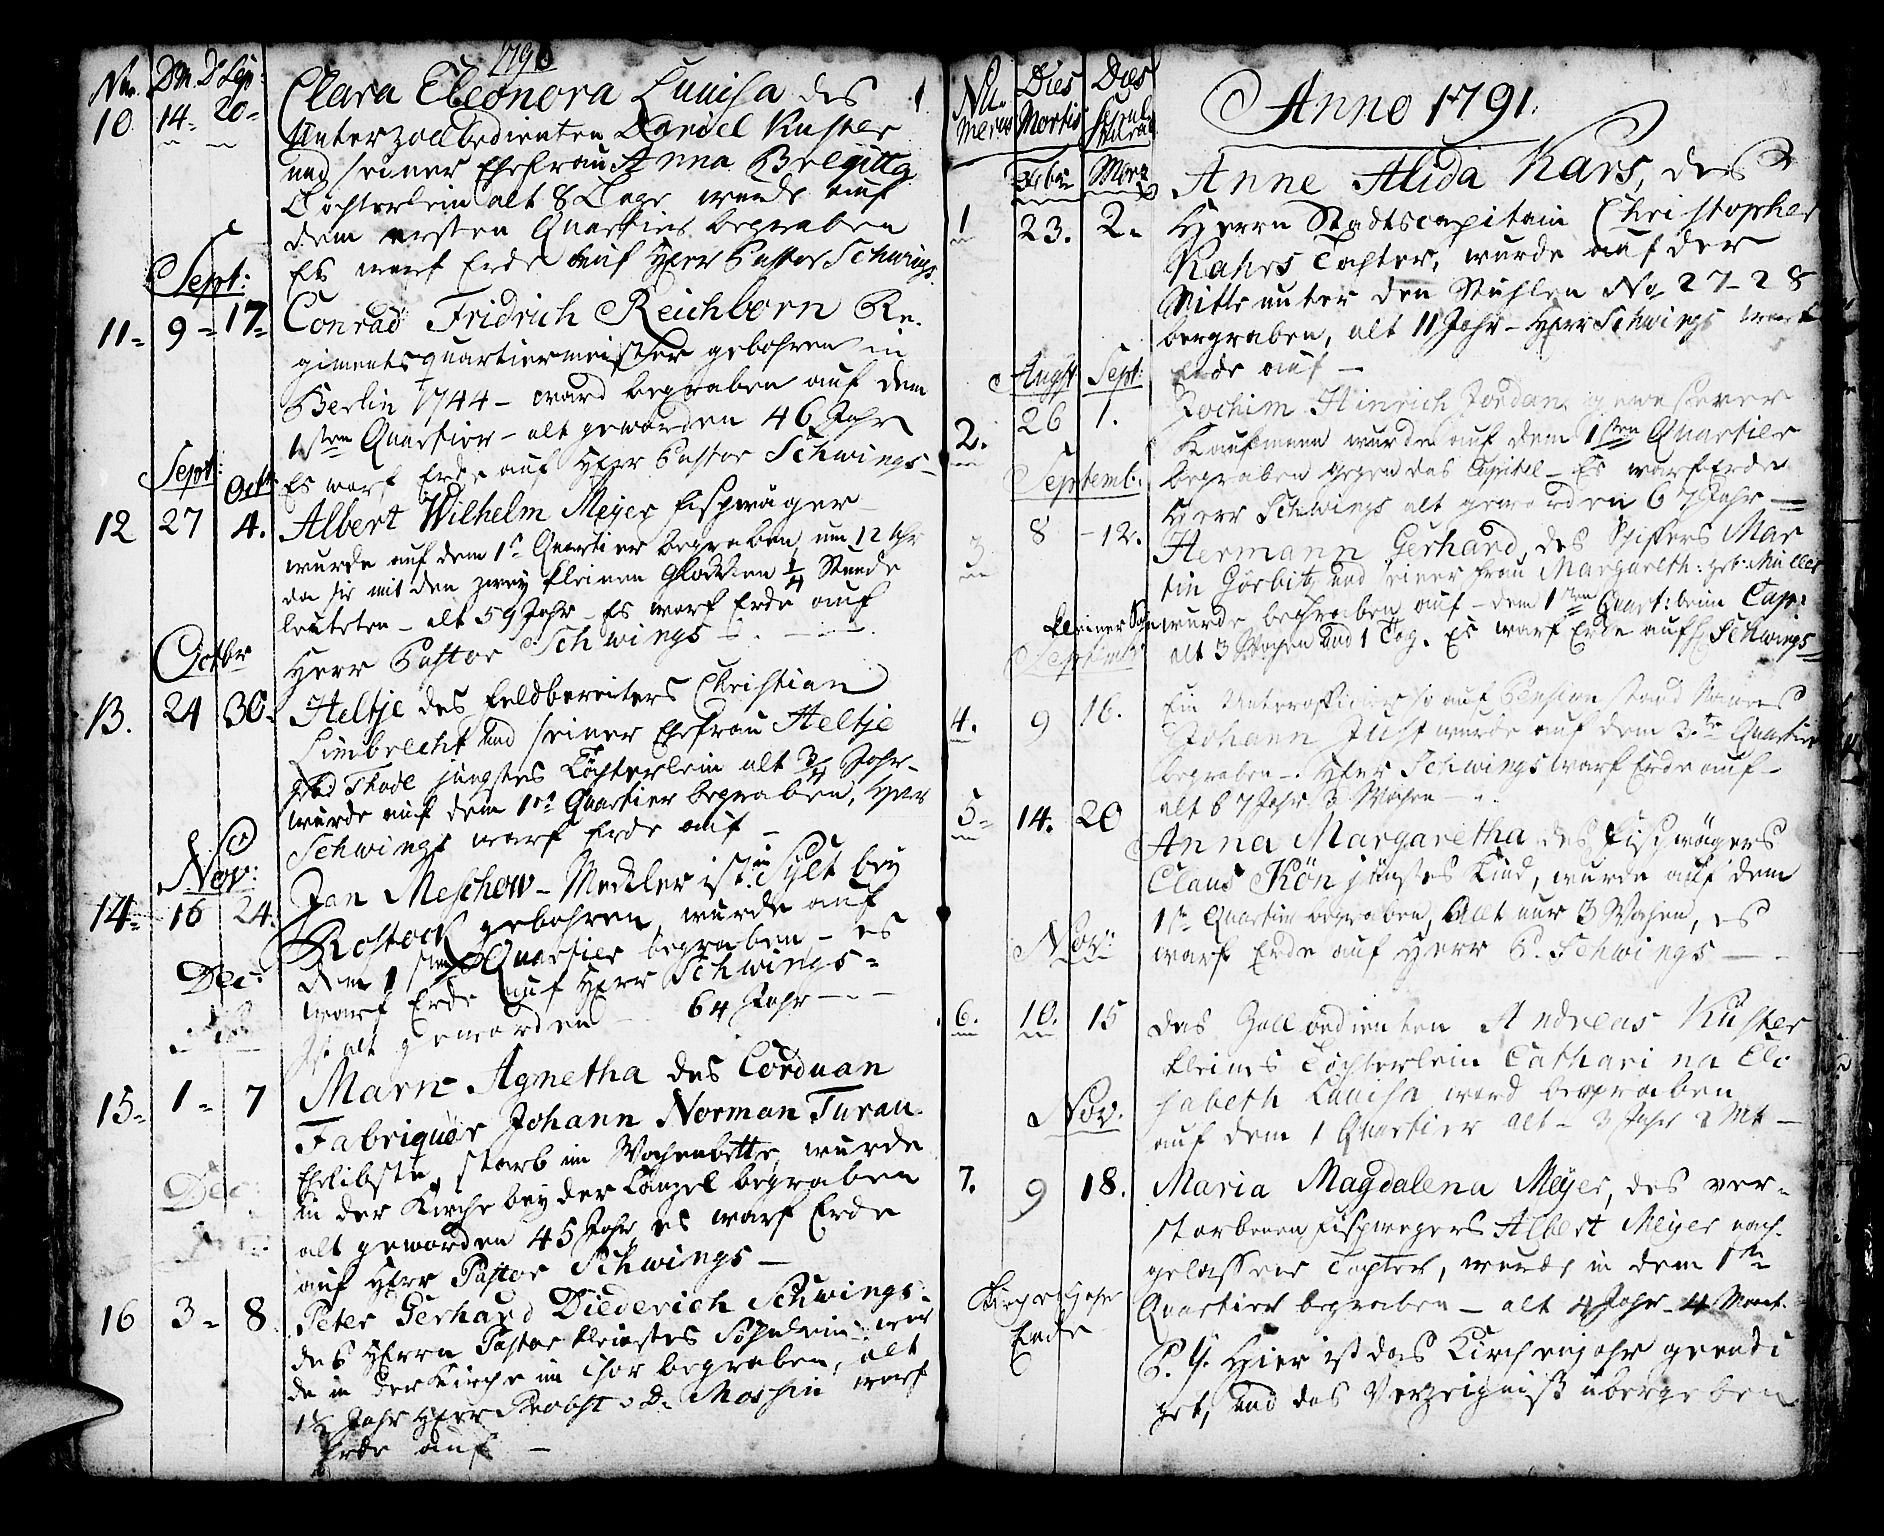 1790
Nu. D M. D Sep:
10 14. 20. Clara Eleonora Luuisa des
Unterzollbedienten Daniel Kuster
und seiner Ehefrau Anna Brigitta
Töchterlein alt 8 Tage wurde auf
dem ersten Quartier begraben
Es warf Erde auf Herr Pastor Schwings.
Sept:
11. 9. 17. Conrad Fridrich Reichborn Re-
gimentsquartiermeister gebohren in
Berlin 1744 - ward begraben auf dem
1sten Quartier - alt geworden 46 Jahr
Es warf Erde auf Herr Pastor Schwings -
Sept: Octb
12 27 4. Albert Wilhelm Meyer Fischwäger
wurde auf dem 1t Quartier begraben, um 12 Uhr
da sie mit den zwey kleinen Glocken 1/4 Stunde
leuteten - alt 59 Jahr - Es warf Erde auf
Herr Pastor Schwings -
Octbr
13. 24 30. Heltje des Feldbereiters Christian
Limbrecht und seiner Ehefrau Heltje
geb Thode jüngstes Töchterlein alt 3/4 Jahr -
wurde auf dem 1st Quartier begraben, Herr
Schwings warf Erde auf -
Nov:
14. 16 24. Jan Meschow - Meckler ist in Sylt bey
Rostock gebohren wurde auf
dem 1sten Quartier begraben - es
warf Erde auf Herr Schwings -
Ist alt geworden 64 Jahr -
Dec:
15. 1. 7 Marn Agnetha des Corduan
Fabriquer Johann Norman Turau
Ehelibste, starb im Wochenbette, wurde
in der Kirche bey der Canzel begraben
alt geworden 45 Jahr, es warf Erde
auf Herr Pastor Schwings -
Dec:
16 3. 8 Peter Gerhard Diederich Schwings.
des Herrn Pastor kleinstes Söhnlein wur
de in der Kirche im Chor begraben, alt
1 1/2 Jahr Herr Probst D. Moshin warf
Erde auf -
Anno 1791.
Nu- Dies Dies
merus Mortis Sepul
Febr Merz
1 23. 2. Anne Alida Kars, des
Herrn Stadtscapitain Christopher
Kahrs Tochter, wurde auf der
Mitte unter den Stühlen No 27-28
begraben, alt 11 Jahr - Herr Schwings warf
Erde auf -
Augst Sept:
2. 26 1. Jochim Hinrich Jordan, gewesener
Kaufmann wurde auf dem 1sten Quartier
begraben gegen das Capitel - Es warf Erde
Herr Schwings alt geworden 67 Jahr -
Septemb:
3. 8 12. Hermann Gerhard, des Schiffers Mar
tin Görbitz und seiner Frau Margareth: geb: Müller
kleiner Sohn wurde begraben auf - dem 1sten Quart: beim Cap:
alt 3 Wochen und 1 Tag. Es warf Erde auf H Schwings
Septemb:
4. 9 16. Ein Unterofficier so auf Pension stand Namens
Johann Just wurde auf dem 3te Quartier
begraben - Herr Schwings warf Erde auf -
alt 67 Jahr 3 Wochen -
5. 14. 20 Anna Margaretha des Fischwägers
Claus Kön jüngstes Kind, wurde auf dem
1te Quartier begraben, Allt nur 3 Wochen, es
warf Erde auf Herr P. Schwings -
Nov:
6. 10. 15 Das Zollbedienten Andreas Kuster
kleines Töchterlein Catharina Eli
sabeth Lauisa ward begraben
auf dem 1 Quartier alt - 3 Jahr 2 Mt -
Nov.
7. 9 18. Maria Magdalena Meyer, des ver-
storbenen Fischwegers Albert Meyer nach-
gelassene Tochter, wurde in dem 1te
Quartier begraben - alt 4 Jahr - 4 Mont.
Kirchenjahr
Ende
Hier ist das Kirchenjahr geendi
get, und das Verzeigniß übergeben